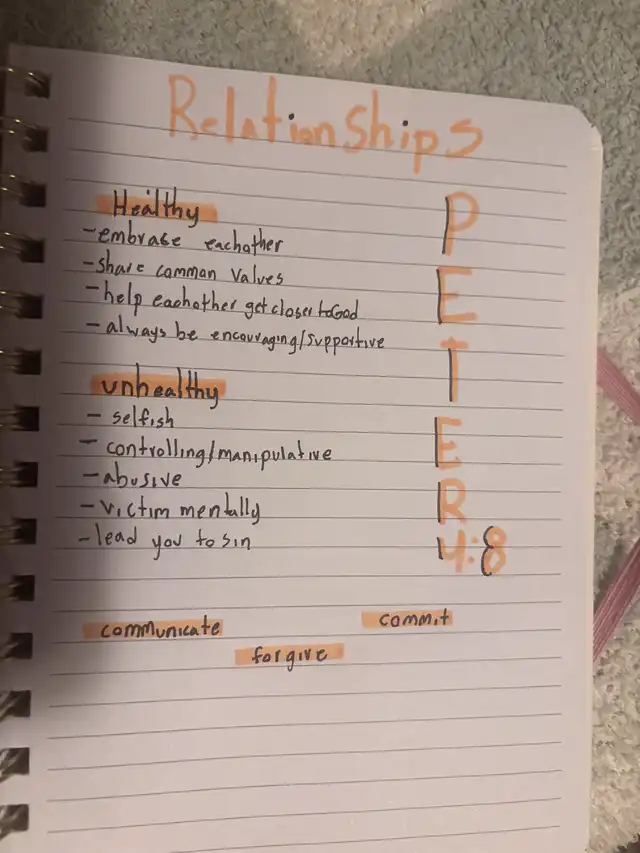 Relationships
Healthy
- embrase eachother
- share common values
- help eachother get closer to God
- always be encouraging/supportive
unhealthy
- selfish
- controlling/manipulative
- abusive
- victim mentally
- lead you to sin
PETER
4:8
communicate
commit
forgive